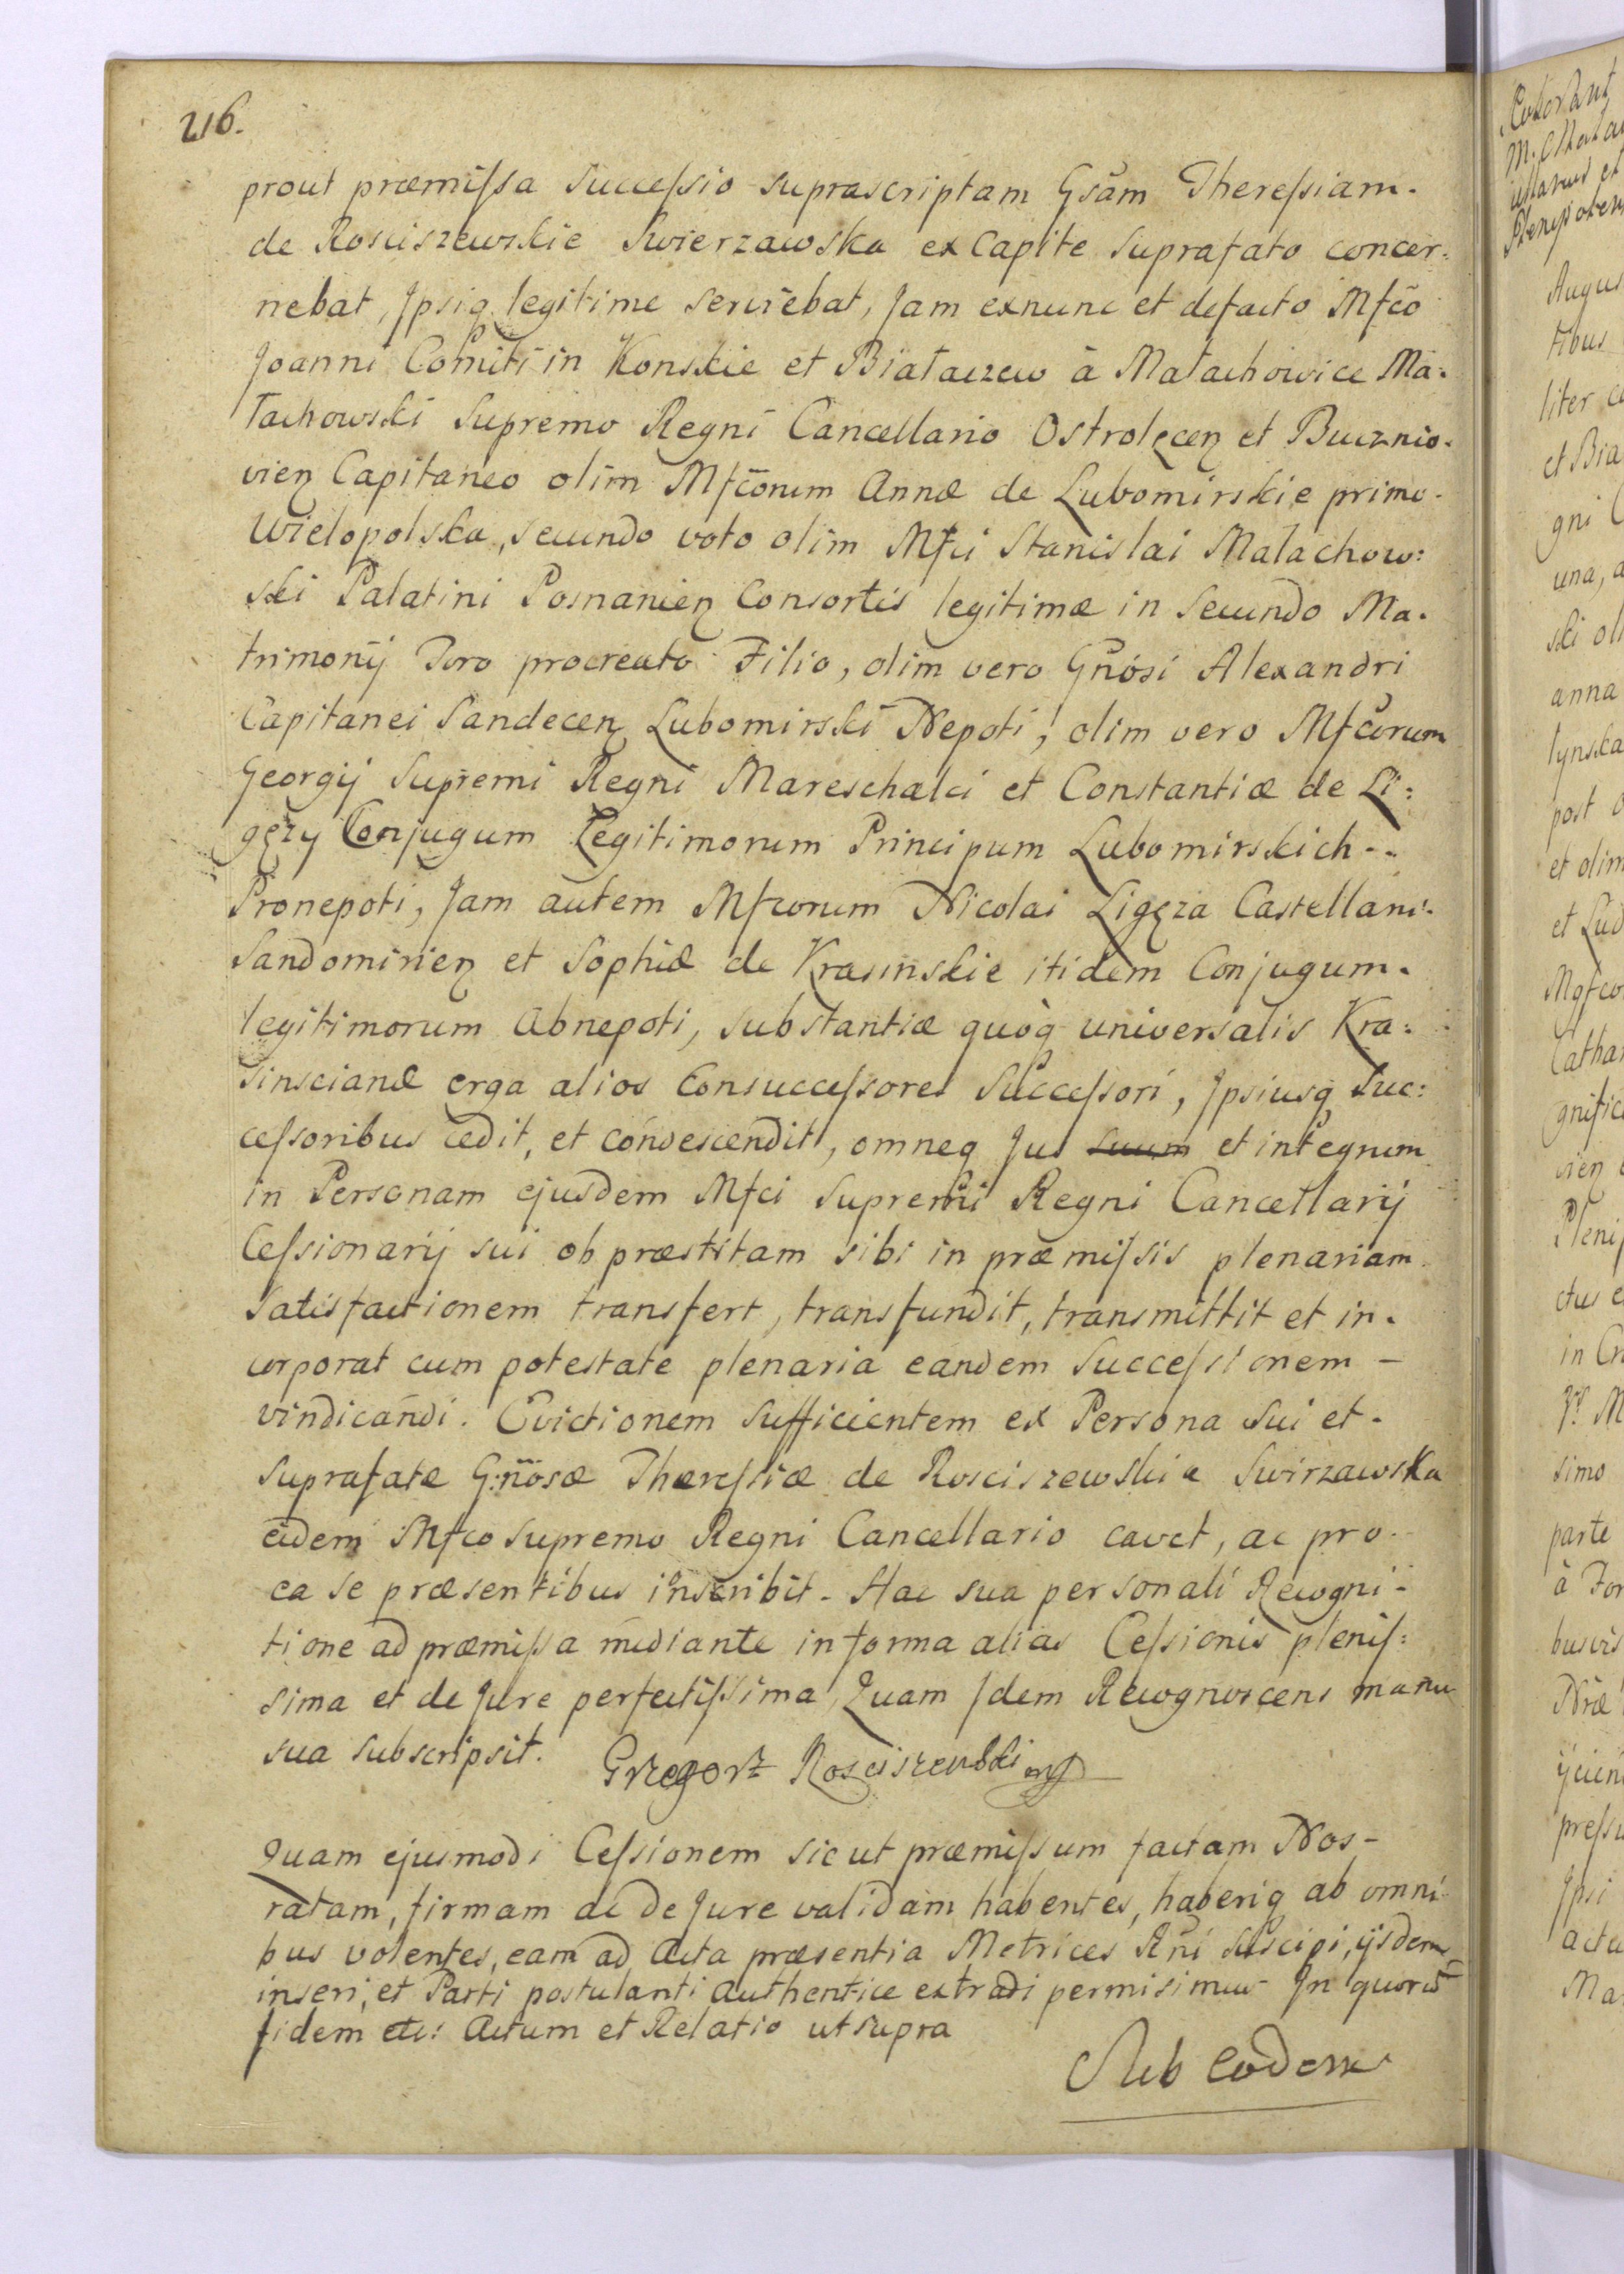 216.
prout præmissa Successio suprascriptam Gsãm Theressiam.
de Rosciszewskie Swierzawska ex Capite suprafato concer:
nebat, Ipsiq legitime serviebat, Jam exnunc et defacto Mfcõ
Joanni Comiti in Konskie et Białaczew à Małachowice Ma:
łachowski Supremo Regni Cancellario Ostrolęcen et Bucznio-
vien Capitaneo olim Mfcõrum Annæ de Lubomirskie primo-
Wielopolska, secundo voto olim Mfci Stanislai Malachow:
ski Palatini Posnanien Consortis legitimæ in Secundo Ma-
trimonij Toro procreato Filio, olim vero Gnõsi Alexandri
Capitanei Sandecen Lubomirski Nepoti, olim vero Mfcõrum
Georgij Supremi Regni Mareschalci et Constantiæ de Li:
gęzy Conjugum Legitimorum Principum Lubomirskich--
Pronepoti, Jam autem Mfcorum Nicolai Ligęza Castellani-
Sandomirien et Sophiæ de Krasinskie itidem Conjugum.
legitimorum Abnepoti, substantiæ quòq universalis Kra:
sinscianæ erga alios Consuccessores Successori, Ipsiusq Suc:
cessoribus cedit, et condescendit, omneq Jus suum et integrum
in Personam ejusdem Mfci Supremi Regni Cancellarij
Cessionarij sui ob præstitam sibi in præmissis plenariam
Satisfactionem transfert, transfundit, transmittit et in-
corporat cum potestate plenaria eandem Successionem -
vindicandi. Evictionem sufficientem ex Persona sui et-
suprafatæ G:nõsæ Theressiæ de Rosciszewskie Swirzawska
eidem Mfco Supremo Regni Cancellario cavet, ac pro-
ea se præsentibus inscribit. Hac sua personali Recogni-
tione ad præmissa mediante in forma alias Cessionis plenis:
sima et de Jure perfectissima, Quam Idem Recognoscens manu
sua subscripsit. Grzegorz Rosciszewski
Quam ejusmodi Cessionem sicut præmissum factam Nos-
ratam, firmam ac de Jure validam habentes, haberiq ab omni
bus volentes, eam ad Acta præsentia Metrices Rñi suscipi, ijsdem
inseri, et Parti postulanti authentice extradi permisimus In quorũ
fidem etc: Actum et Relatio ut supra
Sub eodem